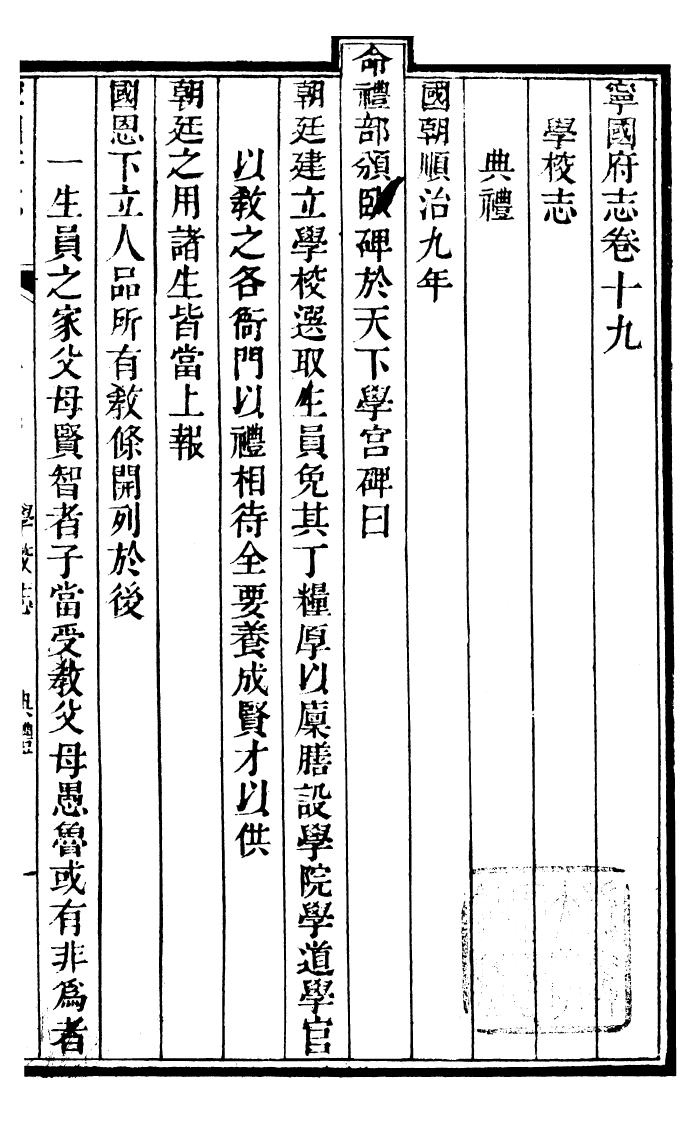 寧國府志卷十九
學校志
典禮
國朝順治九年
命禮部頒臥碑於天下學宮碑曰
朝廷建立學校選取生員免其丁糧厚以廩膳設學院學道學官
以教之各衙門以禮相待全要養成賢才以供
朝廷之用諸生皆當上報
國恩下立人品所有教條開列於後
一生員之家父母賢智者子當受教父母愚魯或有非爲者